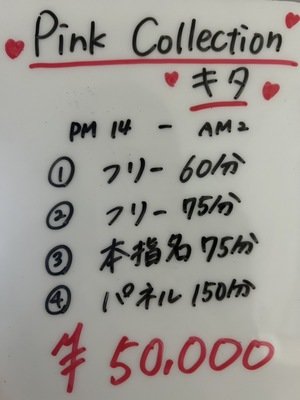 Pink Collection
キタ
PM 14 - AM 2
① フリー 60分
② フリー 75分
③ 本指名 75分
④ パネル 150分
¥ 50,000